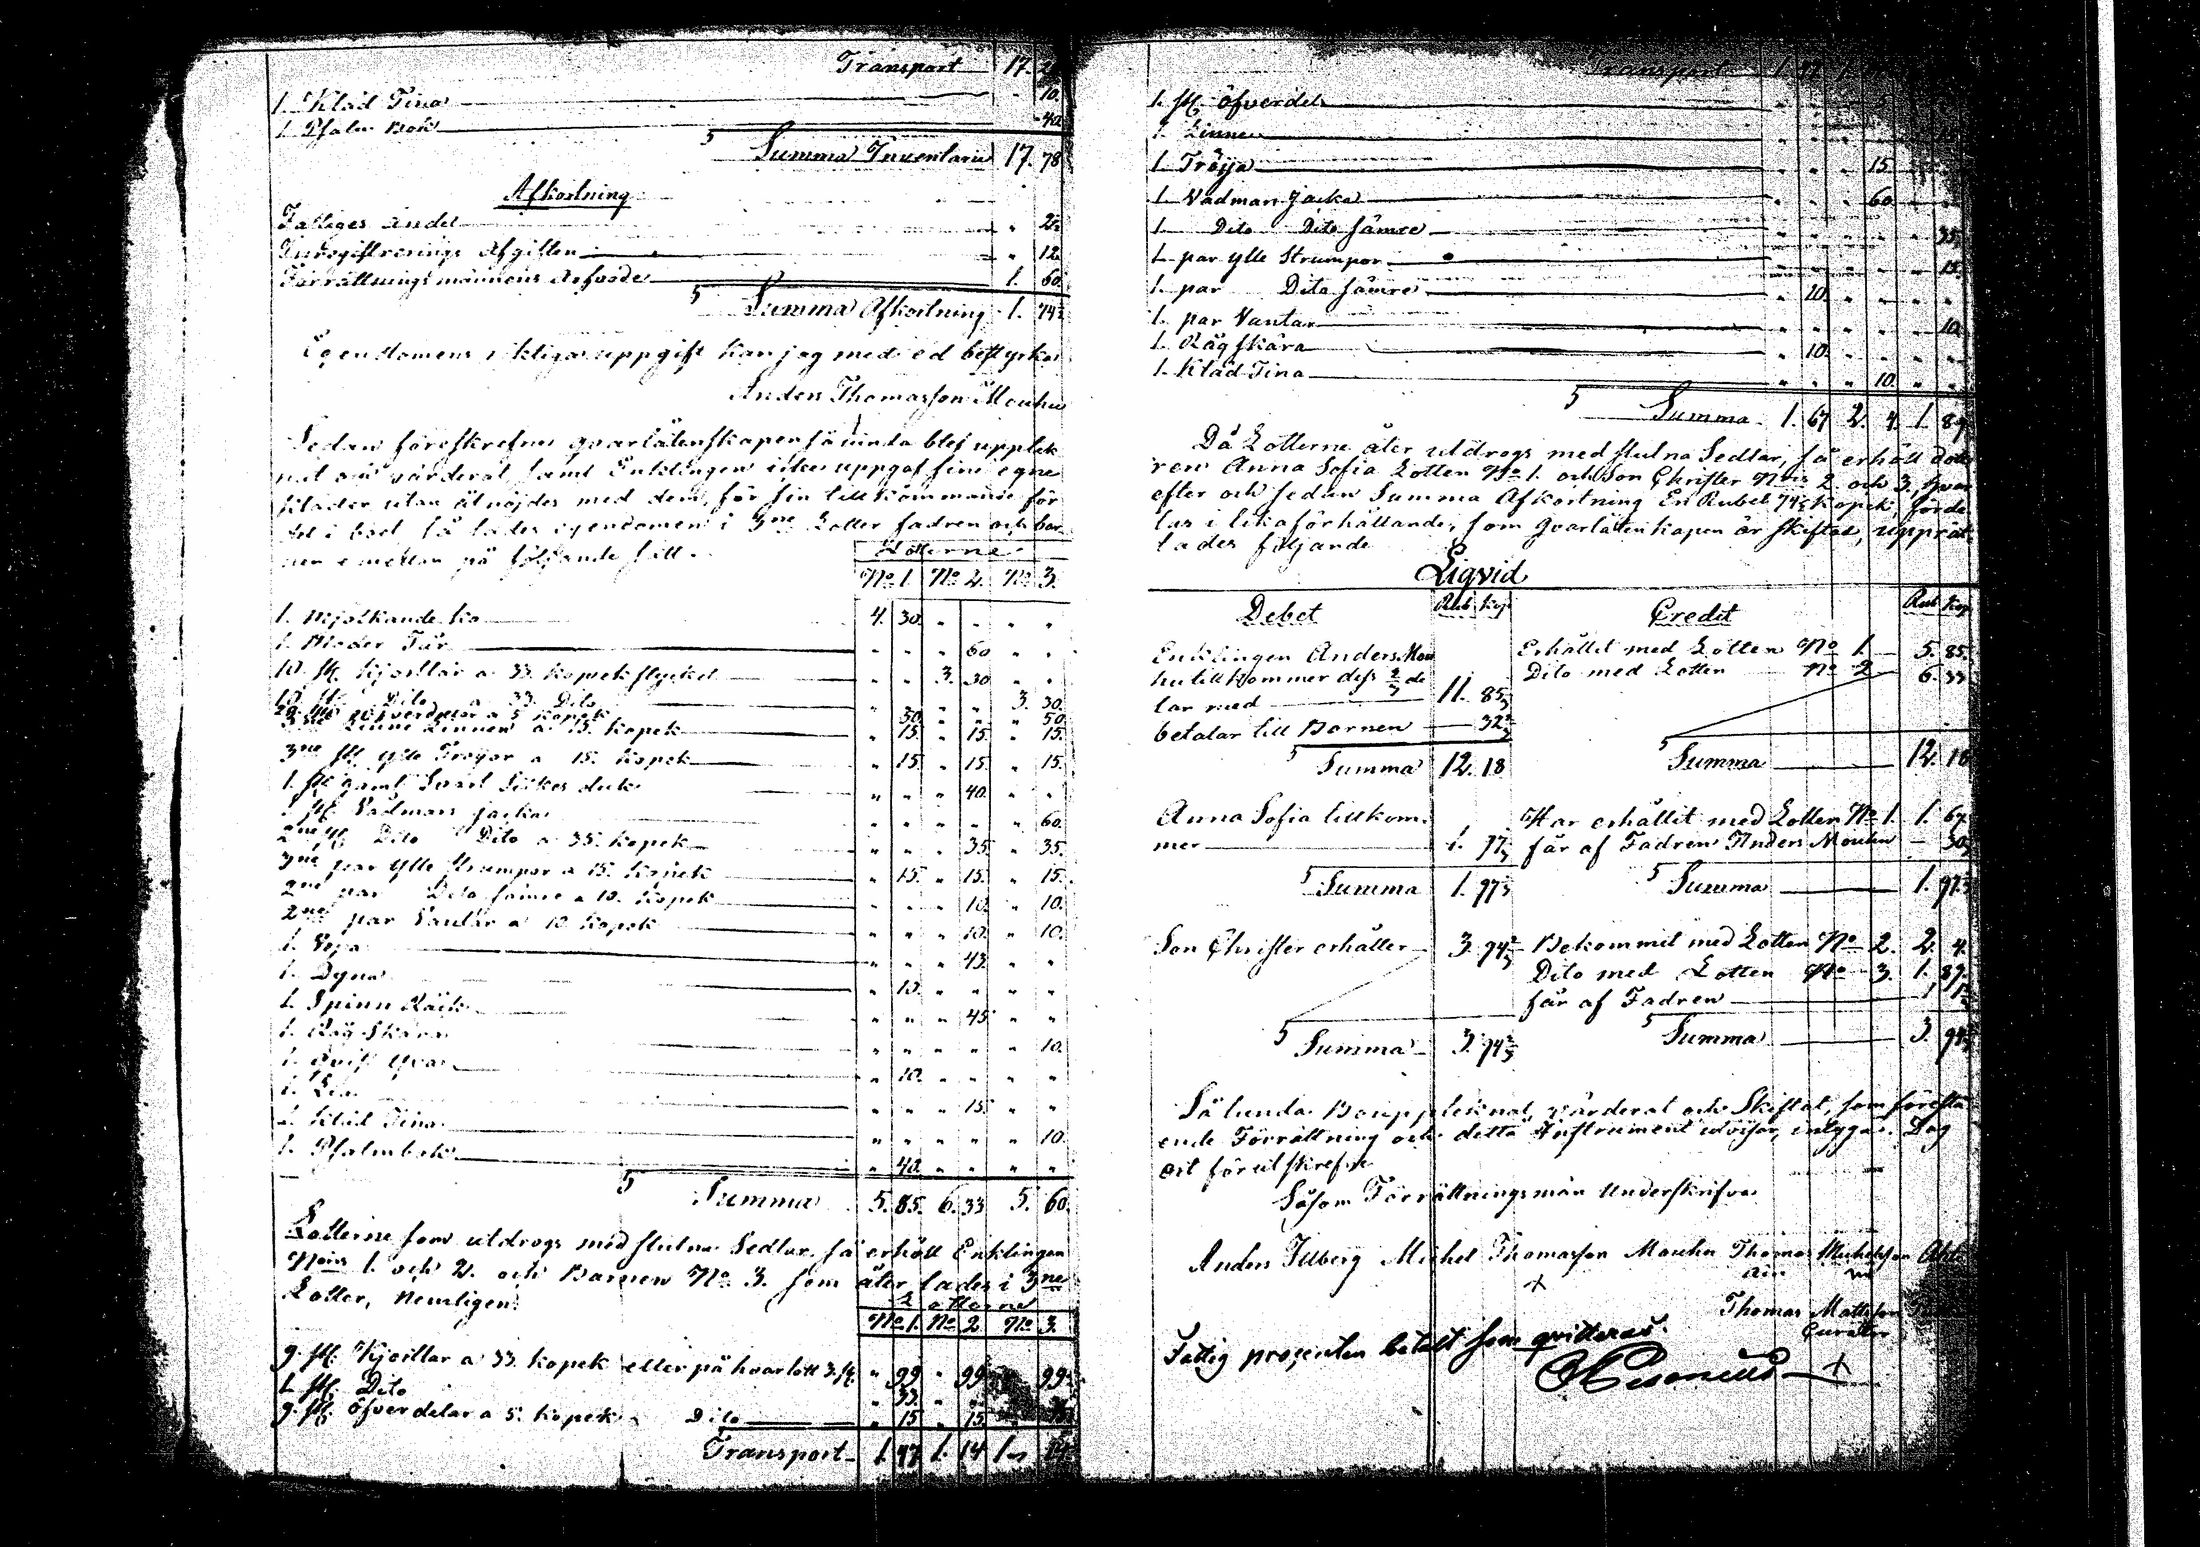 Transport 17.
1. Kläd Tina 10.
1. Psalm Bok 40.
Summa Inventarii 17. 78
Afkortning
Fattiges andel
Inregistrerings Afgiften 12
Förrättningsmännens Arfvode 1. 60.
Summa Afkortning 1. 74
Egendomens riktiga uppgift kan jag med ed bestyrka
Anders Thomasson Mouhu
Sedan föreskrefne qvarlåtenskapen sålunda blef upptek
nad och värderat, samt Enklingen icke uppgaf sine egne
kläder utan åtnöjdes med dem, för sin tillkommande för
del i boet, så lades egendomen i 3ne Lotter fadren och bar
nen emellan på följande sätt.
Lotterne
No 1. No 2. No 3.
1. Mjölkande ko 4. 30. " " " "
1. Moder Får " " " 60 " "
10. st. Kjortlar a 33. kopek stycket " " 3. 30 " "
10. st. Dito a 33. Dito " " " " 3. 30.
20. st. öfverdelar a 5 kopek " 50. " " " 50.
3ne Linnen a 15. kopek " 15. " 15. " 15.
3ne st. ylle Tröyor a 15. kopek " 15. " 15. " 15.
1. st. gaml. Svart Silkes duk " " " 40. " "
1. st. Vadmans jacka " " " " " 60.
2ne st. Dito Dito a 35. kopek " " " 35. " 35.
3ne par ylle strumpor a 15. kopek " 15. " 15. " 15.
2ne par Dito sämre a 10. kopek " " " 10. " 10.
2ne par Vantar a 10 kopek " " " 10. " 10.
1. " " " 43. " "
1. Dyna " 10. " " " "
1. Spinn Råck " " " 45 " "
1. Råg Skära " " " " " 10.
1. " 10. " " " "
1. Lia " " " 15. " "
1. Kläd Tina " " " " " 10.
1. Psalmbok " 40. " " " "
Summa 5. 85. 6. 33 5. 60.
Lotterne som utdrogs med slutna Sedlar. så erhöll Enklingen
Nois 1. och 2. och Barnen No 3. som åter lades i 3ne
Lotter, Nemligen:
Lotterne
No 1. No 2. No 3.
9. st. Kjortlar a 33. kopek eller på hvar lott 3. st. " 99 " 99 99.
1. st. Dito " 33. "
9. st. öfverdelar a 5. kopek Dito " 15 " 15.
Transport 1. 47 1. 14 1 14.
Transport 1. 47 1.
1. st. öfverdel
1. Linne
1. Tröija " " " 15.
1. Vadman Jacka " " " 60.
1. Dito Dito sämre " " " " " 35.
1. par ylle Strumpor " " " " " 15.
1. par Dito sämre " 10. " " " "
1. par Vantar " " " " " 10.
1. Råg skära " 10. " " " "
1. Kläd Tina " " " 10. " "
Summa 1. 67 2. 4. 1. 89.
Då Lotterne åter utdrogs med slutna Sedlar, så erhöll dotte
ren Anna Sofia Lotten No 1. och Son Christer Nois 2. och 3, hvar
efter och sedan Summa Afkortning En Rubel 74 kopek, förde
las i lika förhållande, som qvarlåtenskapen är skiftat, upprät
tades följande
Liqvid
Debet Rub Kop Credit Rub Kop
Enklingen Anders Mou Erhållit med Lotten No 1. 5. 85.
hu tillkommer dess 2/3 de Dito med Lotten No 2 6. 33
lar med 11. 85
betalar till Barnen 32
Summa 12. 18 Summa 12. 18
Anna Sofia tillkom. Har erhållit med Lotten No 1. 1. 67.
mer 1. 97 får af Fadren Anders Mouhu 30
Summa 1. 97 Summa 1. 97
Son Christer erhåller 3. 94 Bekommit med Lotten No 2. 2. 4.
Dito med Lotten No 3. 1. 89.
får af Fadren 1
Summa 3. 94 Summa 3. 94
Så lunda Bouppteknat, värderat och Skiftat, som förestå
ende Förrättning och detta Instrument utvisar, intygas. Dag
ort förutskrefne
Såsom Förrättningsmän Underskrifva
Anders Tilberg Michel Thomasson Mouhu Thomas Michelsson
Thomas Mattsson
Curator
Fattig procenten betalt som qvitteras.